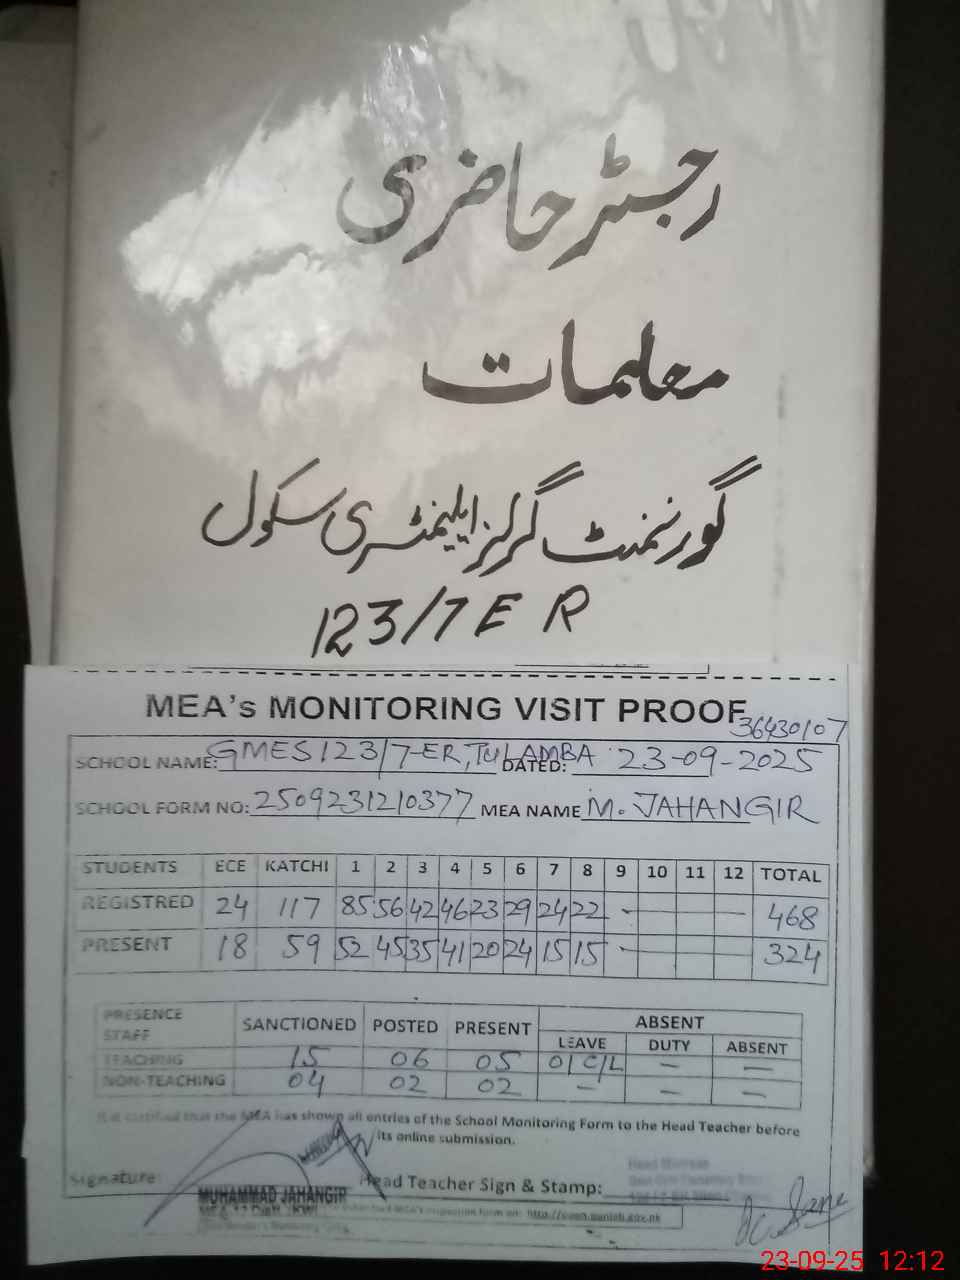 رجسٹر حاضری
معلمات
گورنمنٹ گرلز ایلیمنٹری سکول
123/7 E R
MEA's MONITORING VISIT PROOF
36430107
SCHOOL NAME: GMES 123/7-ER, TULAMBA DATED: 23-09-2025
SCHOOL FORM NO: 2509231210377 MEA NAME M. JAHANGIR
STUDENTS ECE KATCHI 1 2 3 4 5 6 7 8 9 10 11 12 TOTAL
REGISTRED 24 117 85 56 42 46 23 29 24 22 - - - - 468
PRESENT 18 59 52 45 35 41 20 24 15 15 - - - - 324
PRESENCE STAFF SANCTIONED POSTED PRESENT ABSENT
LEAVE DUTY ABSENT
TEACHING 15 06 05 01 C/L - -
NON-TEACHING 04 02 02 - - -
It is certified that the MEA has shown all entries of the School Monitoring Form to the Head Teacher before
its online submission.
Signature: Head Teacher Sign & Stamp:
MUHAMMAD JAHANGIR
MEA's inspection form on: http://open.punjab.gov.pk
23-09-25 12:12